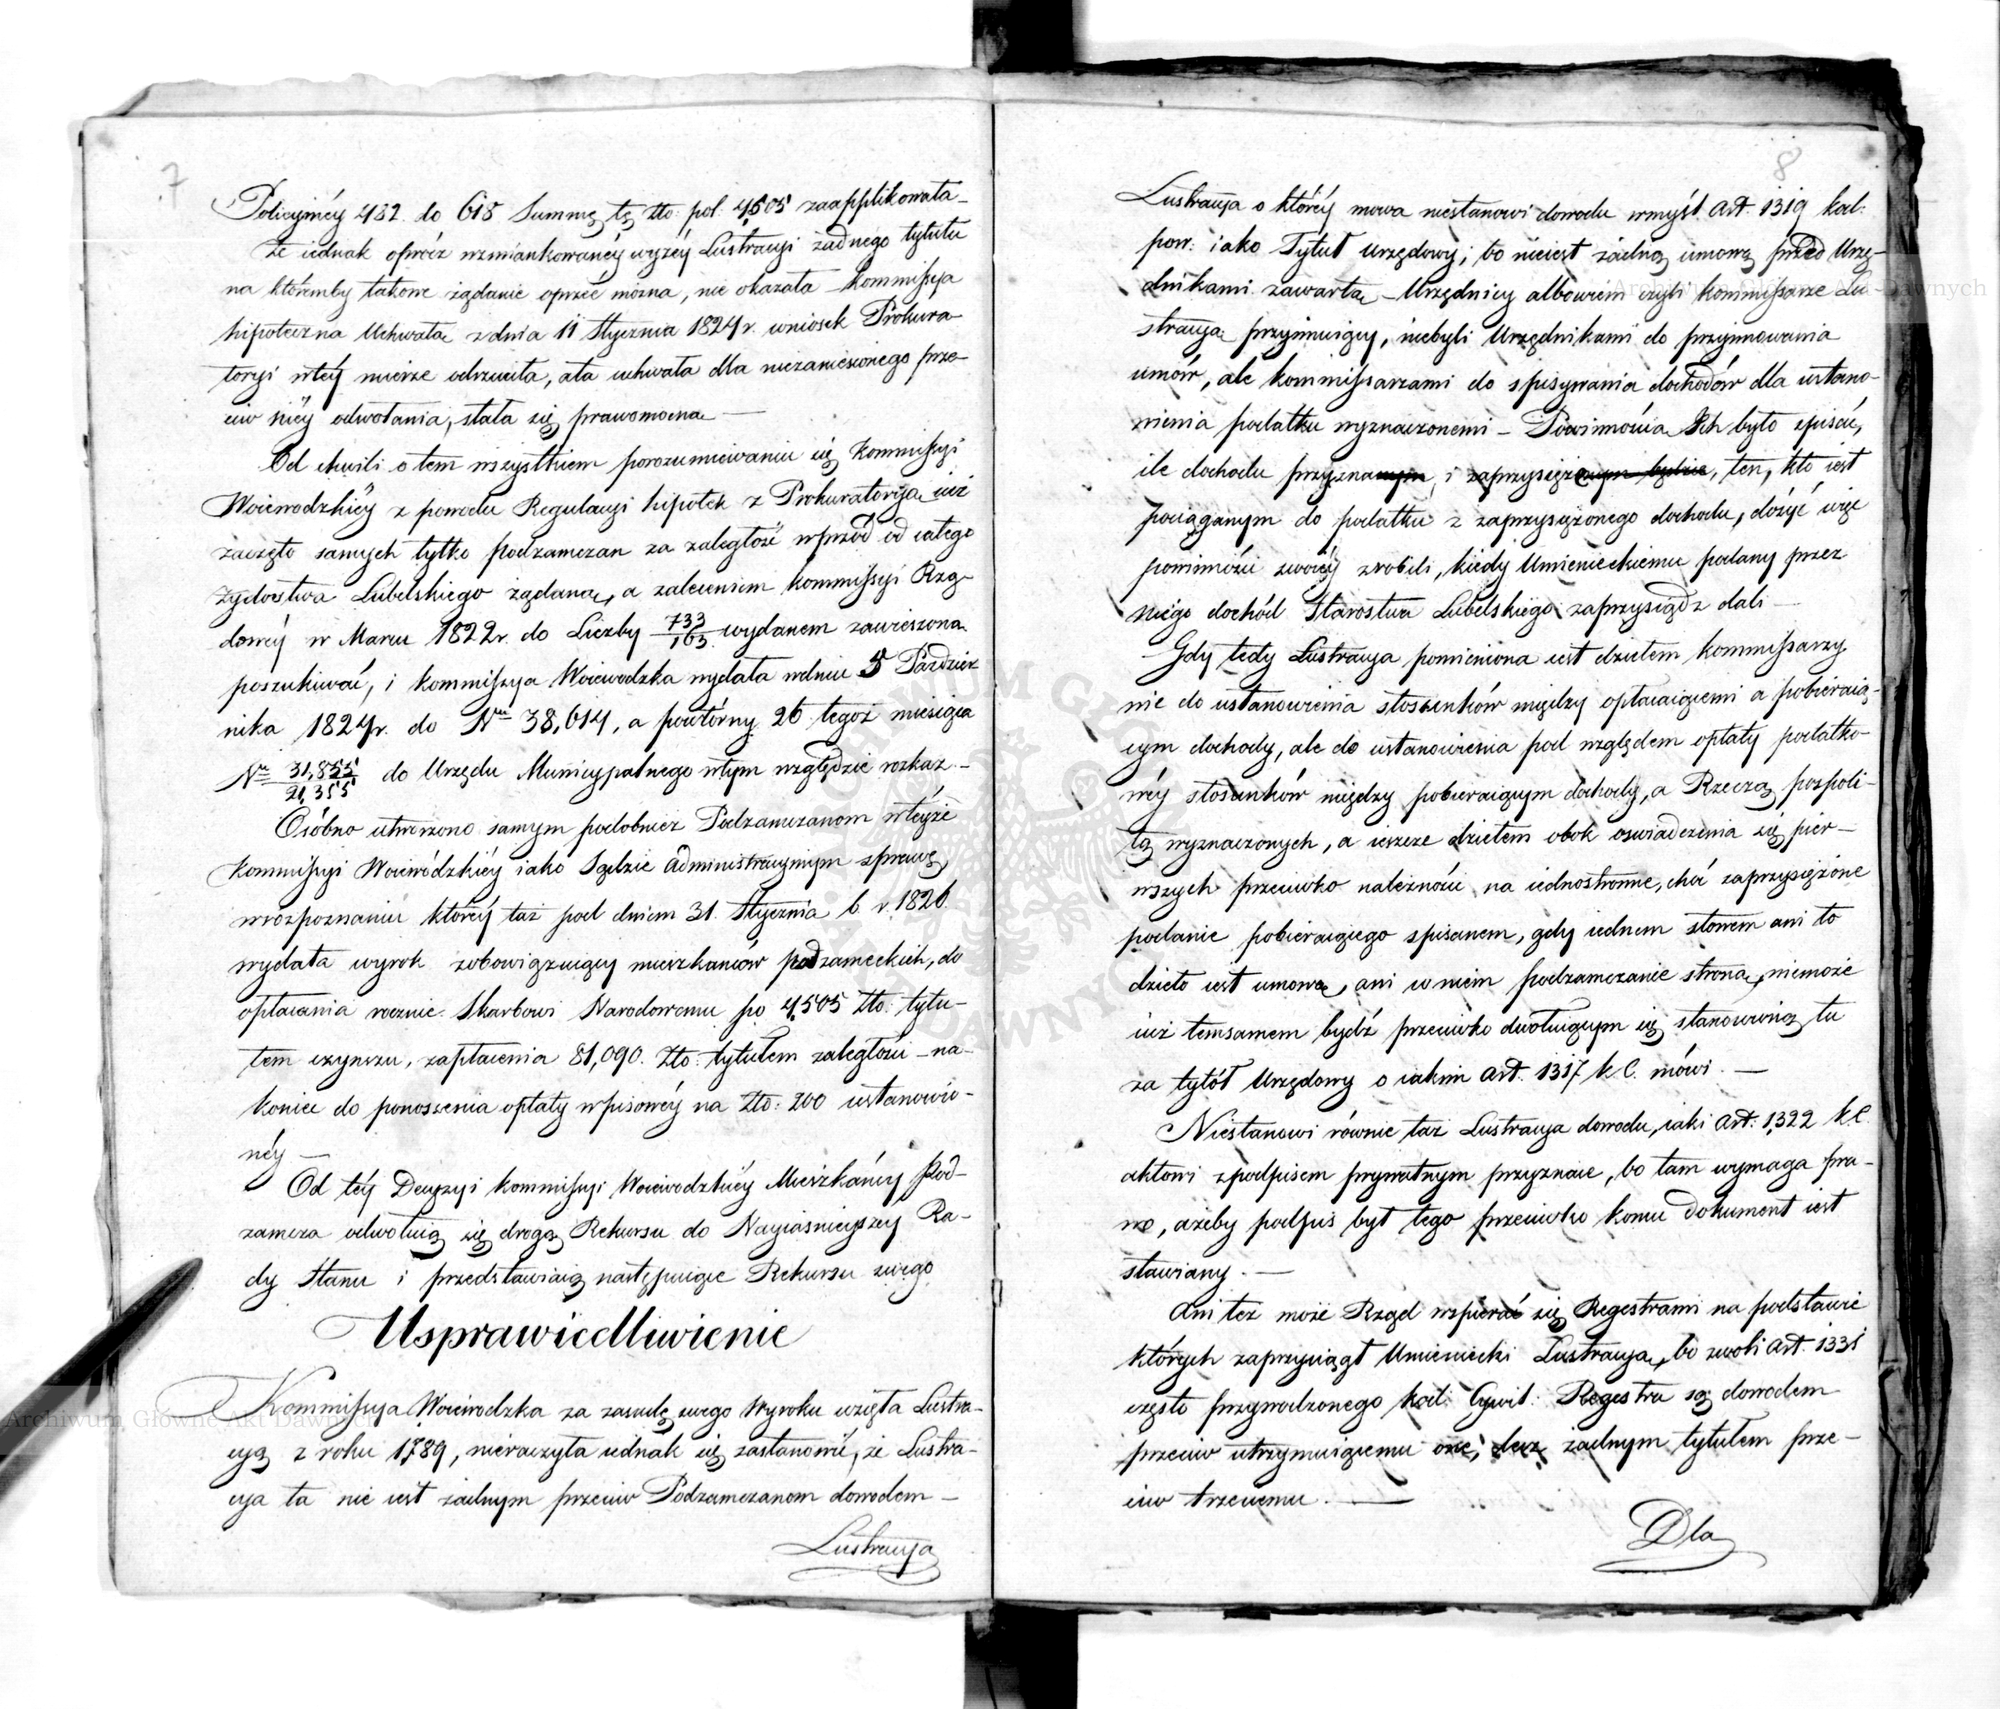 7
Policyinéy 482. do 618 Summę tę zło: pol: 4,505 zaapplikowała_
że iednak oprócz wzmiankowanéy wyżéy Lustracyi żadnego tytułu
na któremby takowe żądanie oprzeć można, nie okazała Kommissya
hipoteczna Uchwałą z dnia 11 Stycznia 1824 r. wniosek Prokura
toryi w téy mierze odrzuciła, a ta uchwała dla niezaniesionego prze-
ciw niéy odwołania, stała się prawomocną —
Od chwili o tem wszystkiem porozumiewaniu się Kommissyi
Woiewodzkiéy z powodu Regulacyi hipotek z Prokuratoryą iuż
zaczęto samych tylko podzamczan za zaległość wprzód od całego
żydostwa Lubelskiego żądaną, a zaleceniem Kommissyi Rzą-
dowéy w Marcu 1822 r. do Liczby 733/163 wydanem zawieszoną
poszukiwać, i Kommissya Woiewodzka wydała w dniu 5 Paździer
nika 1824 r. do Nru 38,614, a powtórny 26 tegoż miesiąca
Nr 31,855/21,355 do Urzędu Municypalnego w tym względzie rozkaz._
Osóbno utworzono samym podobnież Podzamczanom w téyże
Kommissyi Woiewódzkiéy iako Sądzie Administracyinym sprawę,
w rozpoznaniu któréy taż pod dniem 31. Stycznia b. r. 1826
wydała wyrok zobowiązuiący mieszkańców podzameckich, do
opłacania rocznie Skarbowi Narodowemu po 4,505 Zło: tytu-
łem czynszu, zapłacenia 81,090. Zło: tytułem zaległości – na-
koniec do ponoszenia opłaty wpisowéy na Zło: 200 ustanowio-
néy —
Od téy Decyzyi Kommissyi Woiewodzkiéy Mieszkańcy Pod-
zamcza odwołuią się drogą Rekursu do Nayiaśnieyszey Ra-
dy Stanu i przedstawiaią następuiące Rekursu swego
Usprawiedliwienie
Kommissya Woiewodzka za zasadę swego Wyroku wzięła Lustra-
cyą z roku 1789, nieraczyła iednak się zastanowić, że Lustra-
cya ta nie iest żadnym przeciw Podzamczanom dowodem —
Lustracya
8
Lustracya o któréy mowa niestanowi dowodu wmyśl Art. 1319 kod:
pow: iako Tytuł urzędowy; bo nieiest żadną umową przed Urzę-
dnikami zawartą – Urzędnicy albowiem czyli Kommissarze Lu
stracyą przyimuiący, niebyli Urzędnikami do przyimowania
umów, ale Kommissarzami do spisywania dochodów dla ustano-
wienia podatku wyznaczonemi – Powinnością Ich było spisać,
ile dochodu przyzna, i zaprzysięże, ten, kto iest
pociąganym do podatku z zaprzysiężonego dochodu, dosyć więc
powinności swoiéy zrobili, kiedy Umienieckiemu podany przez
niego dochód Starostwa Lubelskiego zaprzysiądz dali —
Gdy tedy Lustracya pomieniona iest dziełem Kommissarzy
nie do ustanowienia stosunków między opłacaiącemi a pobieraią-
cym dochody, ale do ustanowienia pod względem opłaty podatko
wéy stosunków między pobieraiącym dochody, a Rzeczą pospoli-
tą wyznaczonych, a ieszcze dziełem obok oświadczenia się pier-
wszych przeciwko należności na iednostronne, choć zaprzysiężóne
podanie pobieraiącego spisanem, gdy iednem słowem ani to
dzieło iest umową, ani w niem podzamczanie stroną, niemoże
iuż temsamem bydź przeciwko dwoługym się stanowioną tu
za tytół Urzędowy o iakim Art. 1317 k C. mówi. —
Niestanowi równie taż Lustracya dowodu, iaki Art: 1322 k C.
aktowi z podpisem prywatnym przyznaie, bo tam wymaga pra-
wo, ażeby podpis był tego przeciwko komu dokument iest
stawiany. —
Ani też może Rząd wspierać się Regestrami na podstawie
których zaprzysiągł Umieniecki Lustracyą, bo zwoli Art. 1331
często przywodzonego Kod: Cywil: Regestra są dowodem
przeciw utrzymuiącemu one, lecz żadnym tytułem prze-
ciw trzeciemu. —
Dla